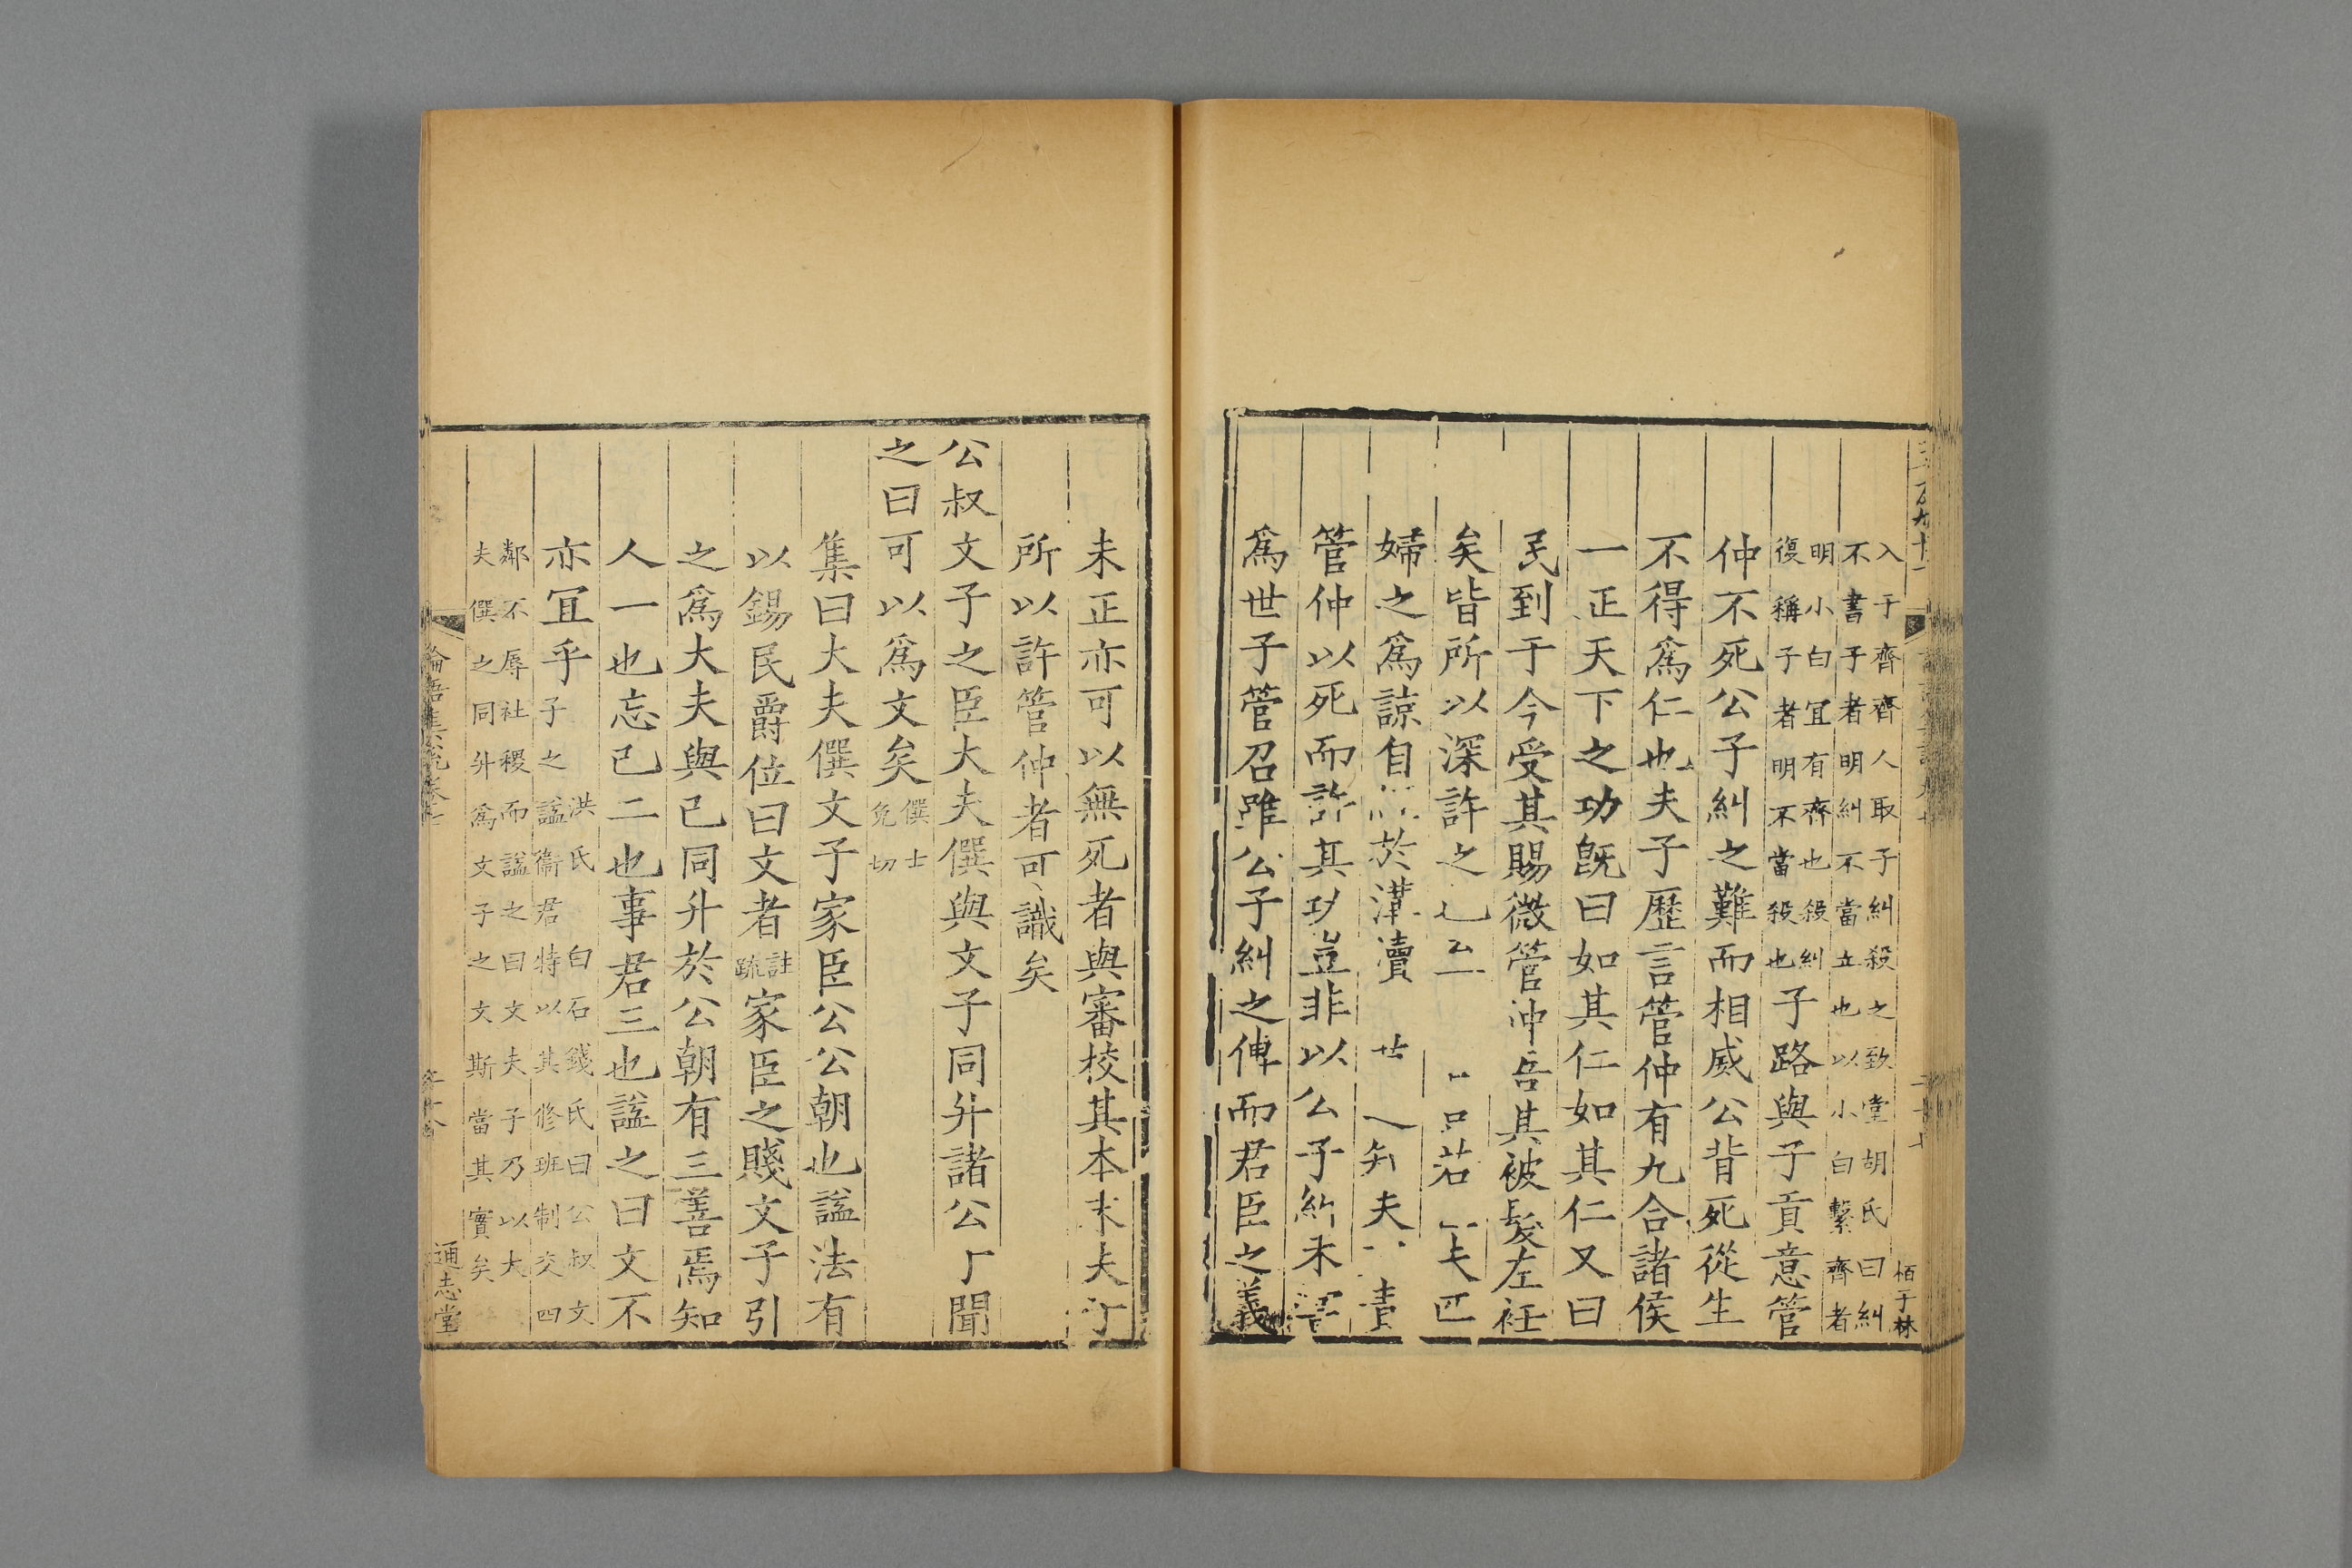 入于齊齊人取子糾殺之致堂胡氏曰糾
不書子者明糾不當立也以小白繫齊者
明小白宜有齊也殺糾
復稱子者明不當殺也子路與子貢意管
仲不死公子糾之難而相威公背死從生
不得爲仁也夫子歷言管仲有九合諸侯
一正天下之功旣曰如其仁如其仁又曰
民到于今受其賜微管仲吾其被髮左衽
矣皆所以深許之也 若 夫匹
婦之爲諒自 於溝瀆 夫 責
管仲以死而許其功豈非以公子糾未
爲世子管召雖公子糾之俾而君臣之義
未正亦可以無死者與審校其本末夫
所以許管仲者可識矣
公叔文子之臣大夫僎與文子同升諸公 聞
之曰可以爲文矣僎士
免切
集曰大夫僎文子家臣公公朝也諡法有
以錫民爵位曰文者註
疏家臣之賤文子引
之爲大夫與己同升於公朝有三善焉知
人一也忘己二也事君三也諡之曰文不
亦宜乎洪氏 白石錢氏曰公叔文
子之諡衞君特以其修班制交四
鄰不辱社稷而諡之曰文夫子乃以大
夫僎之同升爲文子之文斯當其實矣
通志堂